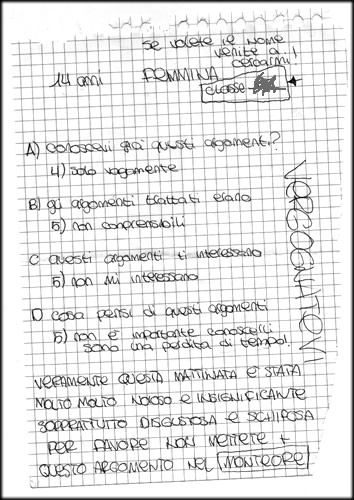 SE VOLETE IL NOME
VENITE A
CERCARMI!
14 anni FEMMINA
classe
A) conoscevi già questi argomenti?
4) solo vagamente
B) gli argomenti trattati erano
5) non comprensibili
C questi argomenti ti interessano
5) non mi interessano
D cosa pensi di questi argomenti
5) non è importante conoscerli
sono una perdita di tempo!
VERAMENTE QUESTA MATTINATA È STATA
MOLTO MOLTO NOIOSO E INSIGNIFICANTE
SOPRATTUTTO DISGUSTOSA E SCHIFOSA
PER FAVORE NON METTETE +
QUESTO ARGOMENTO NEL MONTEORE
VERGOGNATEVI